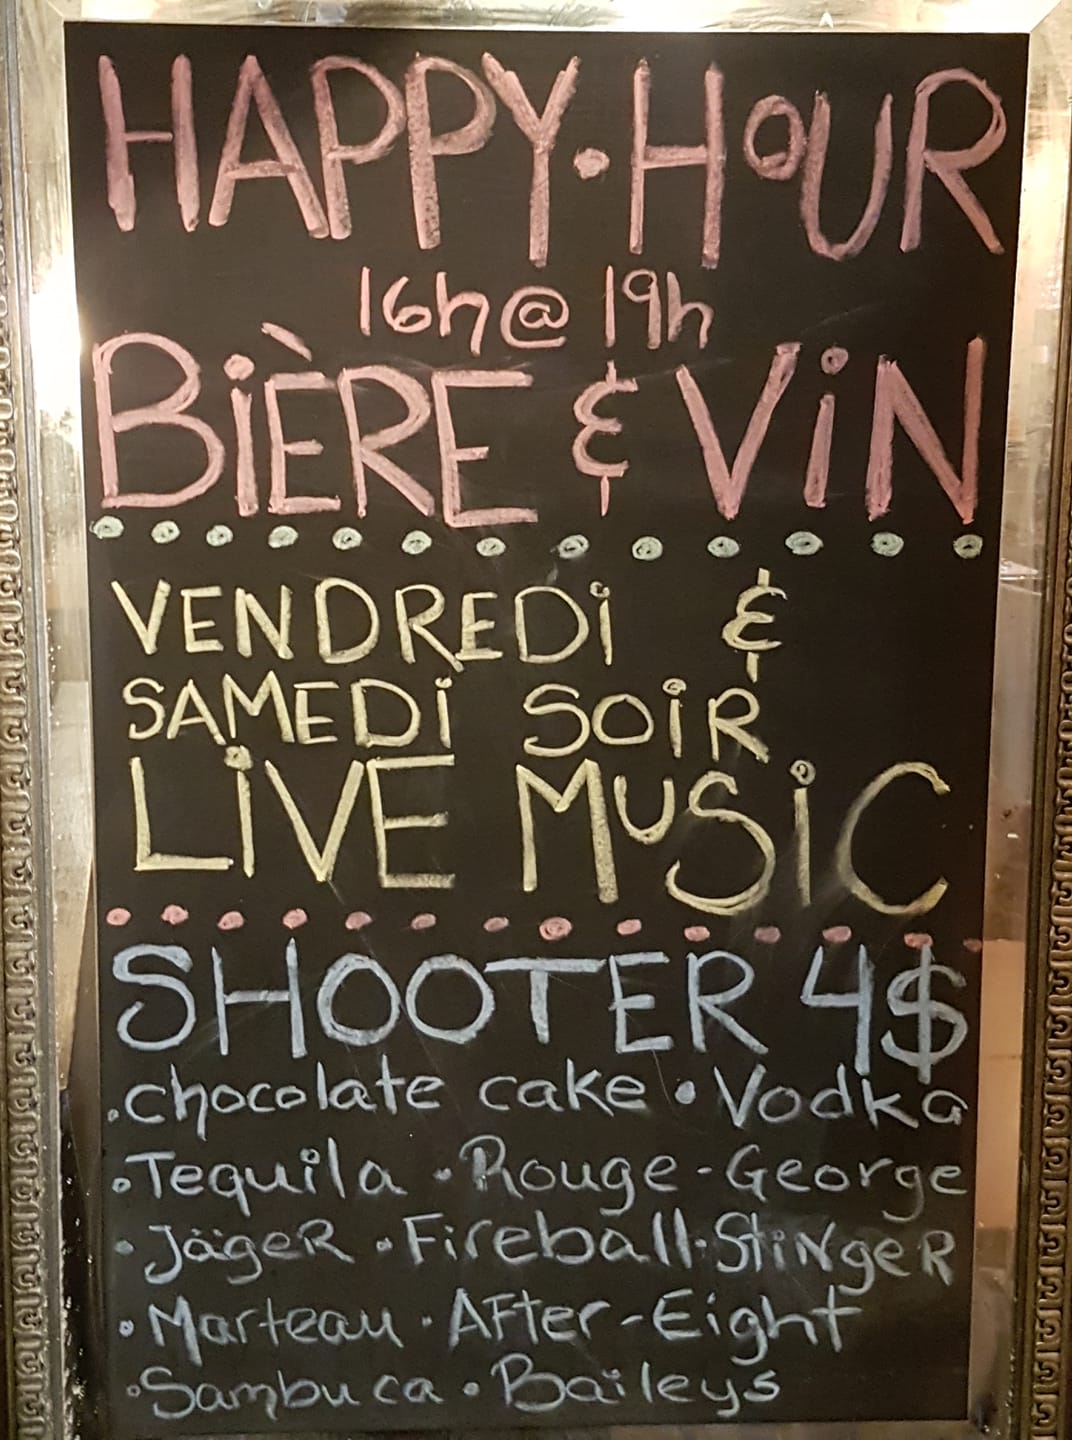 HAPPY · HOUR
16h @ 19h
BIÈRE & VIN
VENDREDI &
SAMEDI SOIR
LIVE MUSIC
SHOOTER 4$
· chocolate cake · Vodka
· Tequila · Rouge-George
· JägeR · Fireball · StiNgeR
· Marteau · AFter-Eight
· Sambuca · Baileys